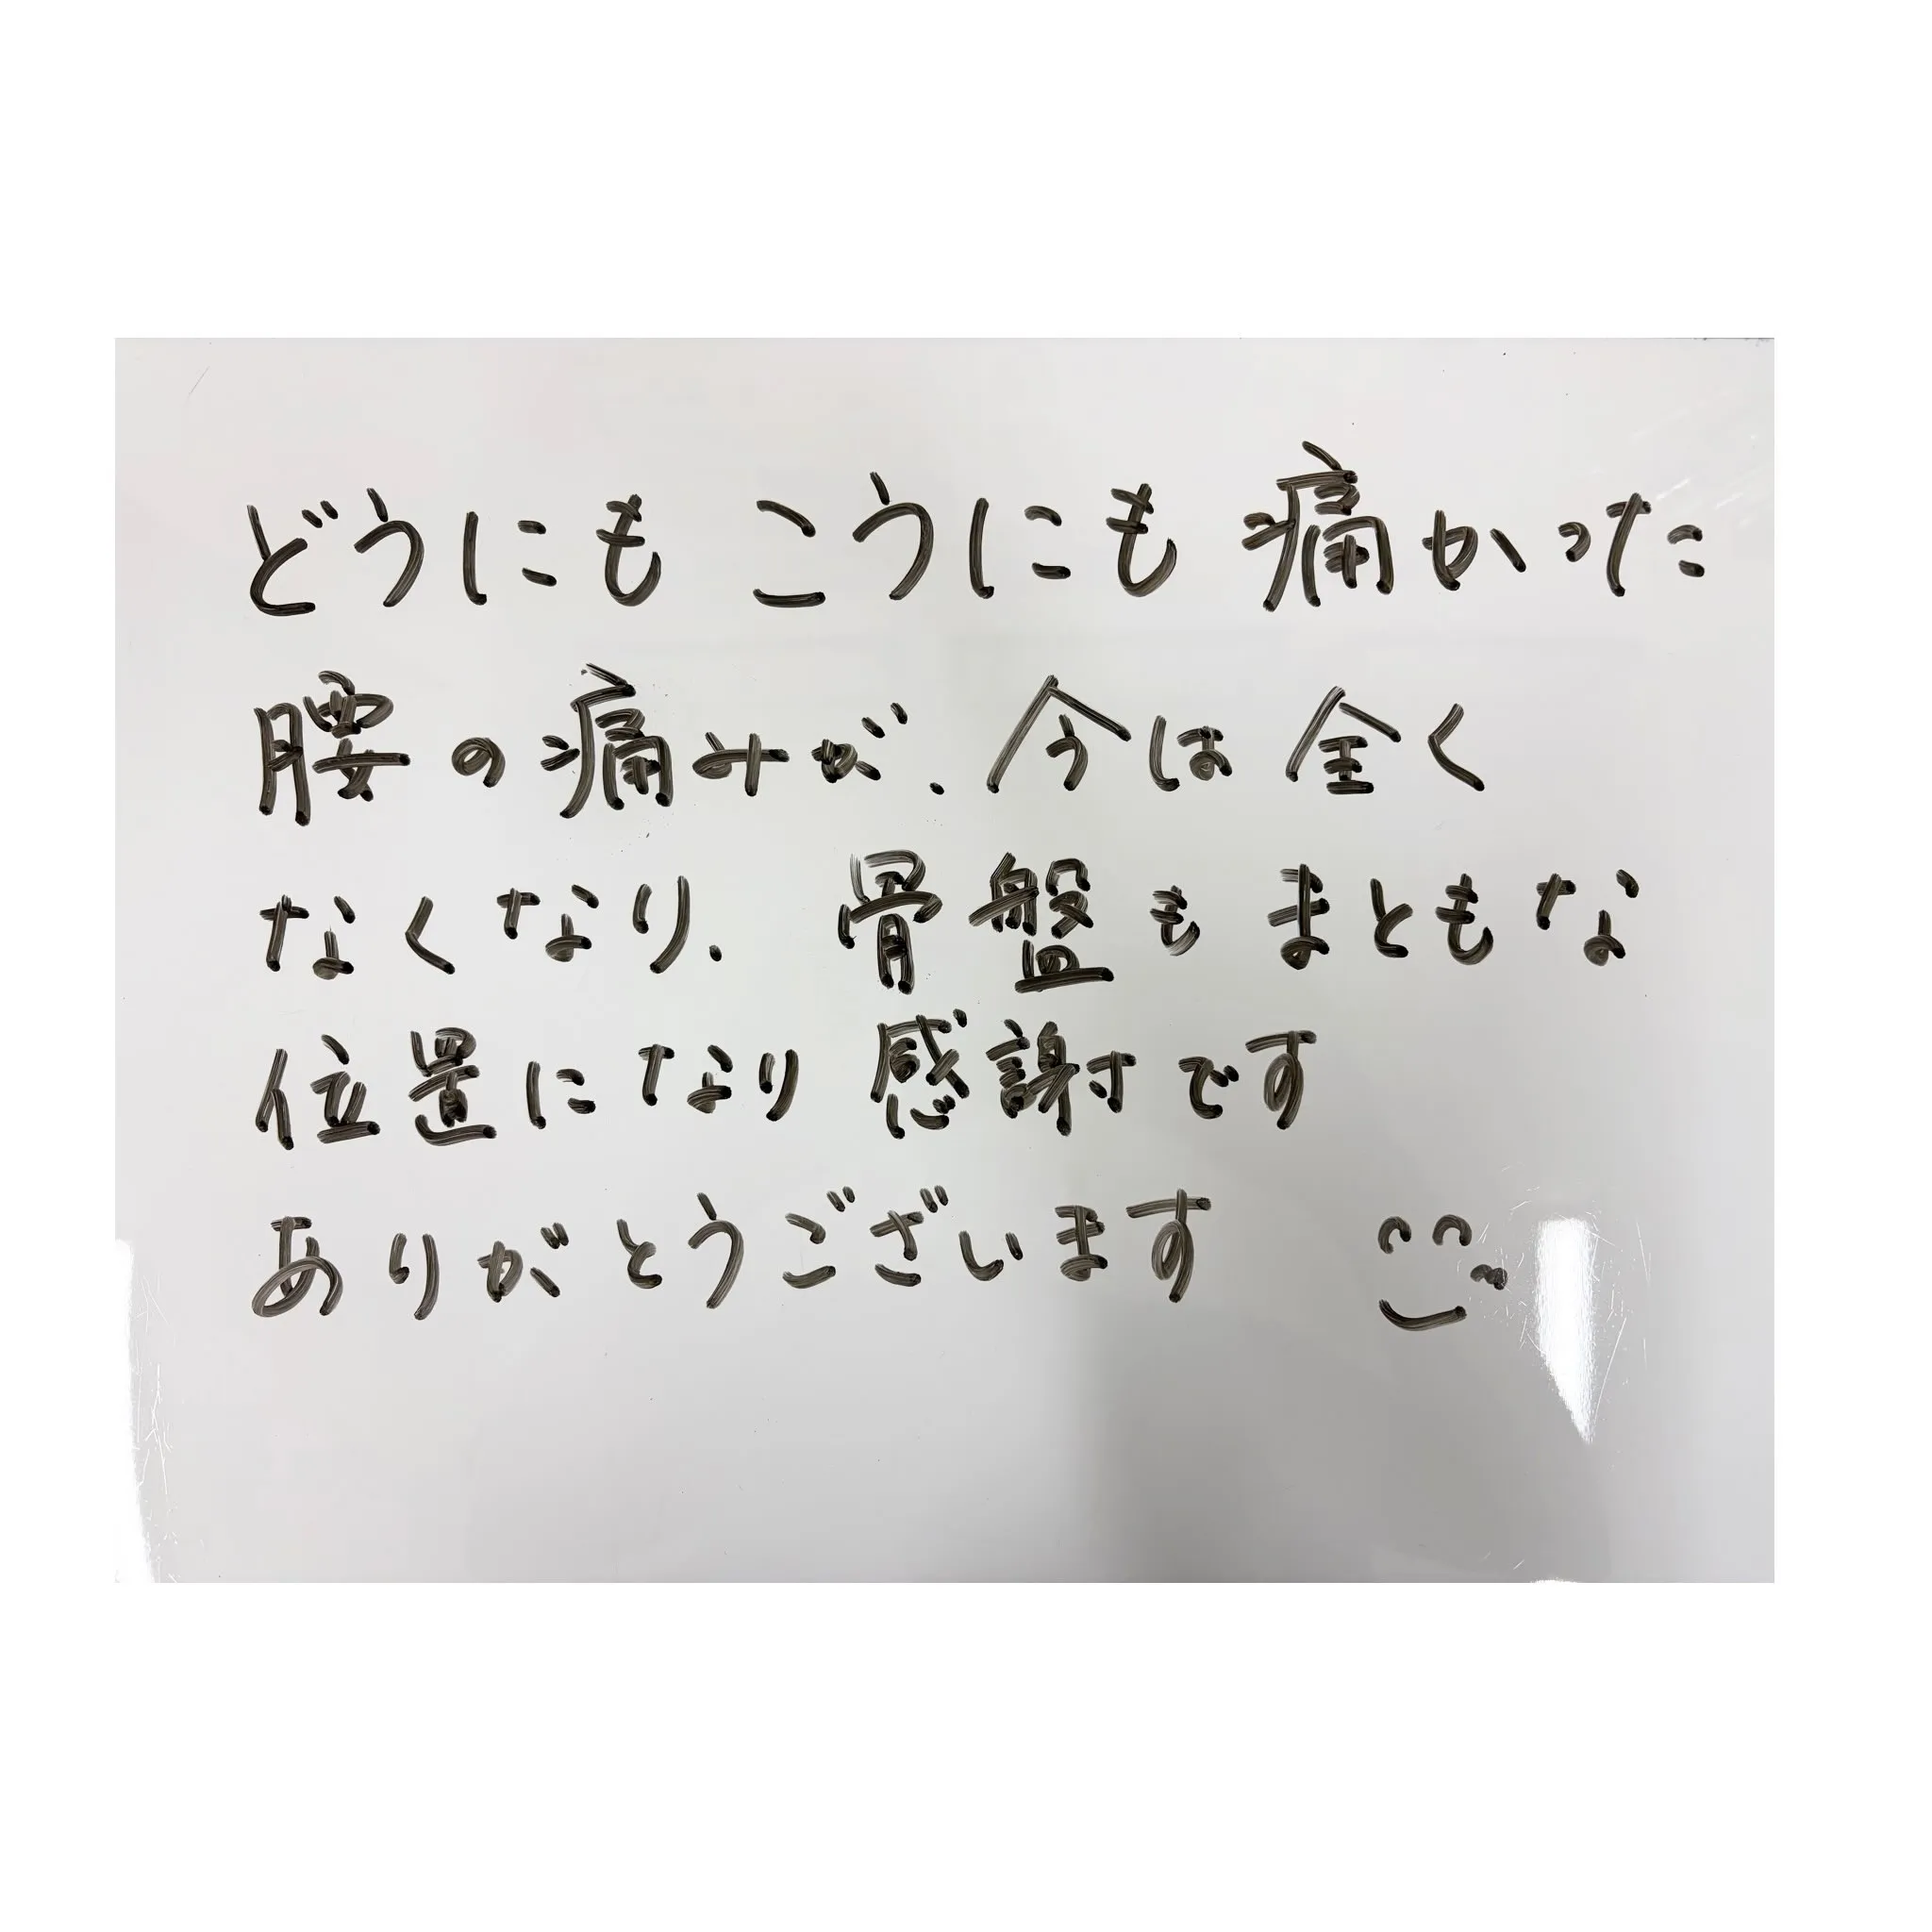 どうにもこうにも痛かった
腰の痛みが、今は全く
なくなり、骨盤もまともな
位置になり感謝です
ありがとうございます